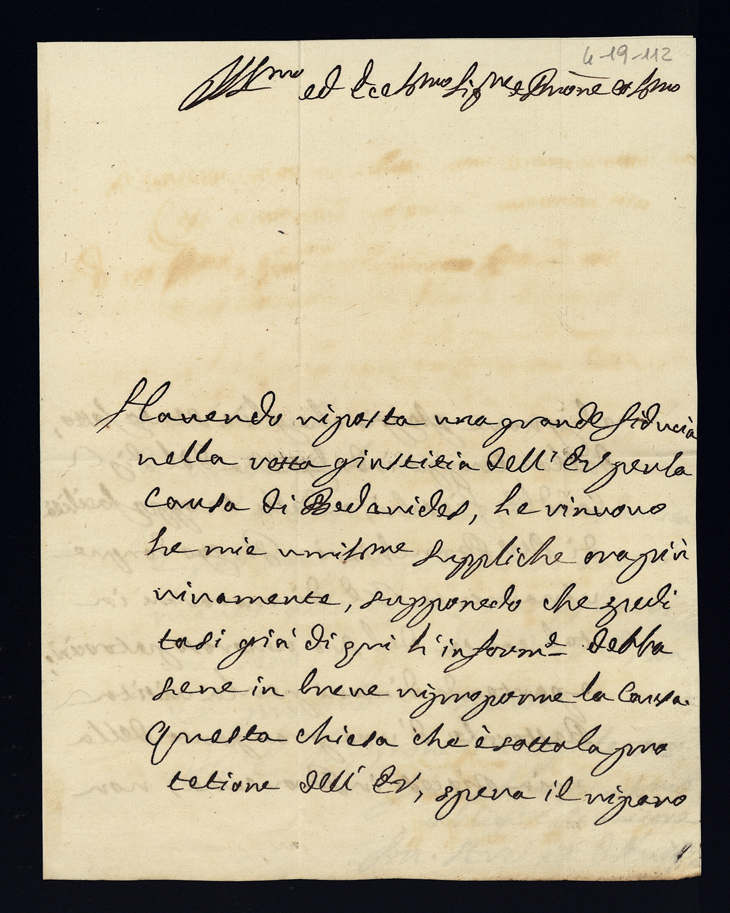 4-19-112
Ill.mo ed Ecc.mo Sig.re e Pñone Col.mo
Havendo riposta una grande fiducia
nella rotta giustitia dell' EV per la
Causa di Bedarides, le rinuovo
le mie umilis.me suppliche ora più
vivamente, supponedo che spedi
tasi già di qui l'inform.e debba
sene in breve riproporre la Causa.
Questa chiesa che è sotto la pro
tetione dell' EV, spera il riparo